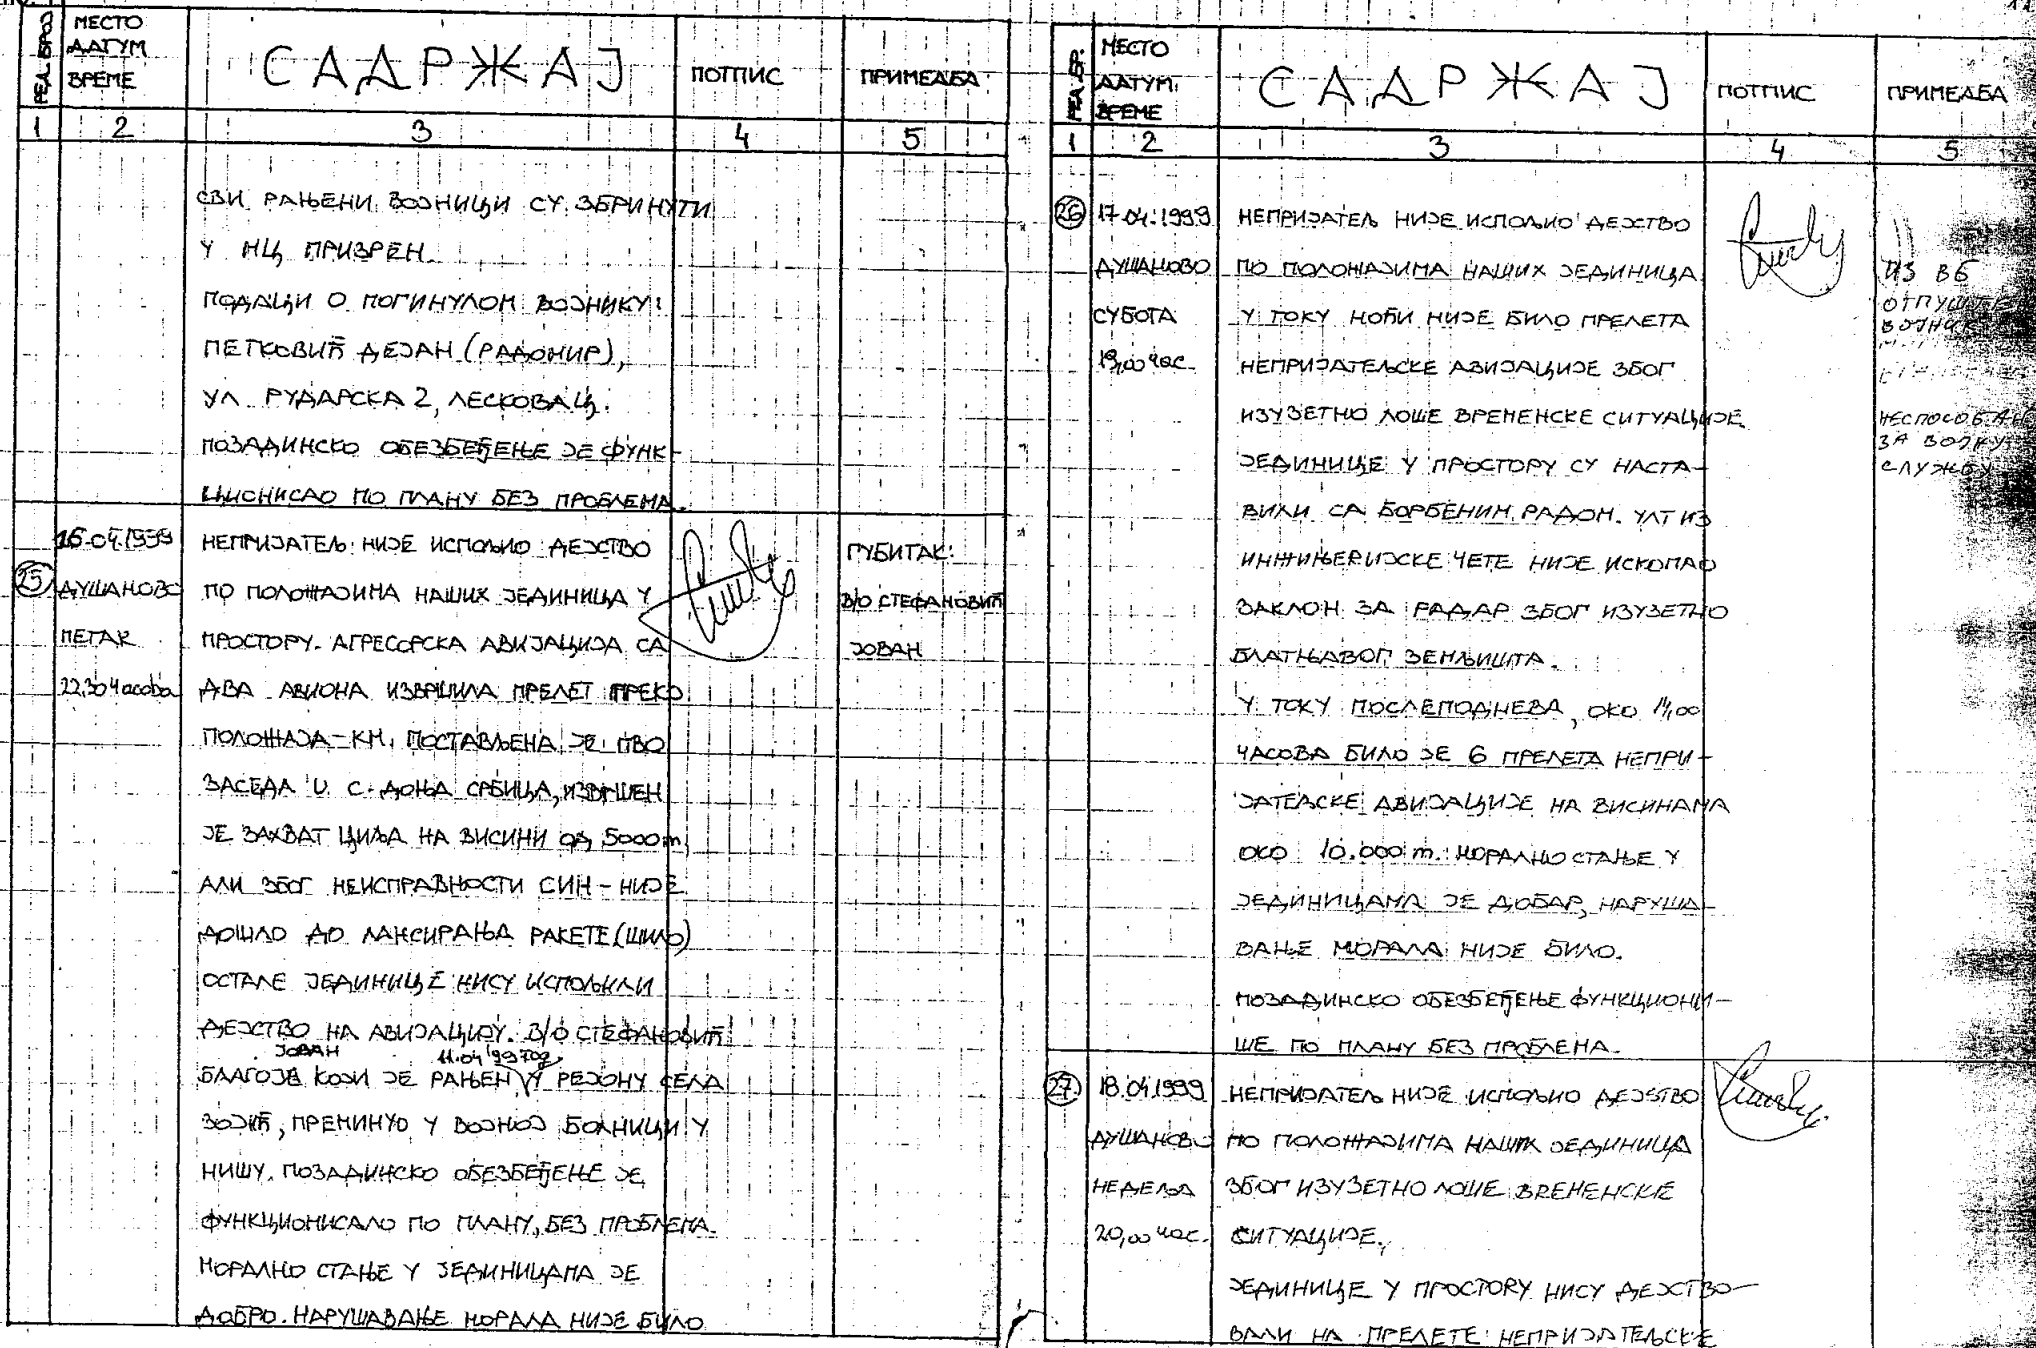 РЕД. БРОЈ
МЕСТО
ДАТУМ
ВРЕМЕ
САДРЖАЈ
ПОТПИС
ПРИМЕДБА
1 2 3 4 5
СВИ РАЊЕНИ ВОЈНИЦИ СУ ЗБРИНУТИ
У НЦ ПРИЗРЕН.
ПОДАЦИ О ПОГИНУЛОМ ВОЈНИКУ:
ПЕТКОВИЋ ДЕЈАН (РАДОМИР),
УЛ РУДАРСКА 2, ЛЕСКОВАЦ.
ПОЗАДИНСКО ОБЕЗБЕЂЕЊЕ ЈЕ ФУНК-
ЦИОНИСАО ПО ПЛАНУ БЕЗ ПРОБЛЕМА.
25
16.04.1999
ДУШАНОВО
ПЕТАК
22,30 часова
НЕПРИЈАТЕЉ НИЈЕ ИСПОЉИО ДЕЈСТВО
ПО ПОЛОЖАЈИМА НАШИХ ЈЕДИНИЦА У
ПРОСТОРУ. АГРЕСОРСКА АВИЈАЦИЈА СА
ДВА АВИОНА ИЗВРШИЛА ПРЕЛЕТ ПРЕКО
ПОЛОЖАЈА-КМ, ПОСТАВЉЕНА ЈЕ ПВО
ЗАСЕДА U С. ДОЊА СРБИЦА, ИЗВРШЕН
ЈЕ ЗАХВАТ ЦИЉА НА ВИСИНИ ОД 5000 m
АЛИ ЗБОГ НЕИСПРАВНОСТИ СИН-НИЈЕ
ДОШЛО ДО ЛАНСИРАЊА РАКЕТЕ (ШИЛО)
ОСТАЛЕ ЈЕДИНИЦЕ НИСУ ИСПОЉИЛИ
ДЕЈСТВО НА АВИЈАЦИЈУ. В/О СТЕФАНОВИЋ
ЈОВАН 11.04'99 год.
БЛАГОЈЕ КОЈИ ЈЕ РАЊЕН У РЕЈОНУ СЕЛА
ЗОЈИЋ, ПРЕМИНУО У ВОЈНОЈ БОЛНИЦИ У
НИШУ. ПОЗАДИНСКО ОБЕЗБЕЂЕЊЕ ЈЕ
ФУНКЦИОНИСАЛО ПО ПЛАНУ, БЕЗ ПРОБЛЕМА.
МОРАЛНО СТАЊЕ У ЈЕДИНИЦАМА ЈЕ
ДОБРО. НАРУШАВАЊЕ МОРАЛА НИЈЕ БИЛО
ГУБИТАК:
В/О СТЕФАНОВИЋ
ЈОВАН
РЕД. БР.
МЕСТО
ДАТУМ
ВРЕМЕ
САДРЖАЈ
ПОТПИС
ПРИМЕДБА
1 2 3 4 5
26
17.04.1999
ДУШАНОВО
СУБОТА
19,00 час.
НЕПРИЈАТЕЉ НИЈЕ ИСПОЉИО ДЕЈСТВО
ПО ПОЛОЖАЈИМА НАШИХ ЈЕДИНИЦА
У ТОКУ НОЋИ НИЈЕ БИЛО ПРЕЛЕТА
НЕПРИЈАТЕЉСКЕ АВИЈАЦИЈЕ ЗБОГ
ИЗУЗЕТНО ЛОШЕ ВРЕМЕНСКЕ СИТУАЦИЈЕ.
ЈЕДИНИЦЕ У ПРОСТОРУ СУ НАСТА-
ВИЛИ СА БОРБЕНИМ РАДОМ. УЛТ ИЗ
ИНЖИЊЕРИЈСКЕ ЧЕТЕ НИЈЕ ИСКОПАО
ЗАКЛОН ЗА РАДАР ЗБОГ ИЗУЗЕТНО
БЛАТЊАВОГ ЗЕМЉИШТА.
У ТОКУ ПОСЛЕПОДНЕВА, ОКО 14,00
ЧАСОВА БИЛО ЈЕ 6 ПРЕЛЕТА НЕПРИ-
ЈАТЕЉСКЕ АВИЈАЦИЈЕ НА ВИСИНАМА
ОКО 10.000 m. МОРАЛНО СТАЊЕ У
ЈЕДИНИЦАМА ЈЕ ДОБАР, НАРУША-
ВАЊЕ МОРАЛА НИЈЕ БИЛО.
ПОЗАДИНСКО ОБЕЗБЕЂЕЊЕ ФУНКЦИОНИ-
ШЕ ПО ПЛАНУ БЕЗ ПРОБЛЕМА.
ИЗ ВБ
НЕСПОСОБАН
ЗА ВОЈНУ
СЛУЖБУ
27
18.04.1999
ДУШАНОВО
НЕДЕЉА
20,00 час.
НЕПРИЈАТЕЉ НИЈЕ ИСПОЉИО ДЕЈСТВО
ПО ПОЛОЖАЈИМА НАШИХ ЈЕДИНИЦА
ЗБОГ ИЗУЗЕТНО ЛОШЕ ВРЕМЕНСКЕ
СИТУАЦИЈЕ.
ЈЕДИНИЦЕ У ПРОСТОРУ НИСУ ДЕЈСТВО-
ВАЛИ НА ПРЕЛЕТЕ НЕПРИЈАТЕЉСКЕ